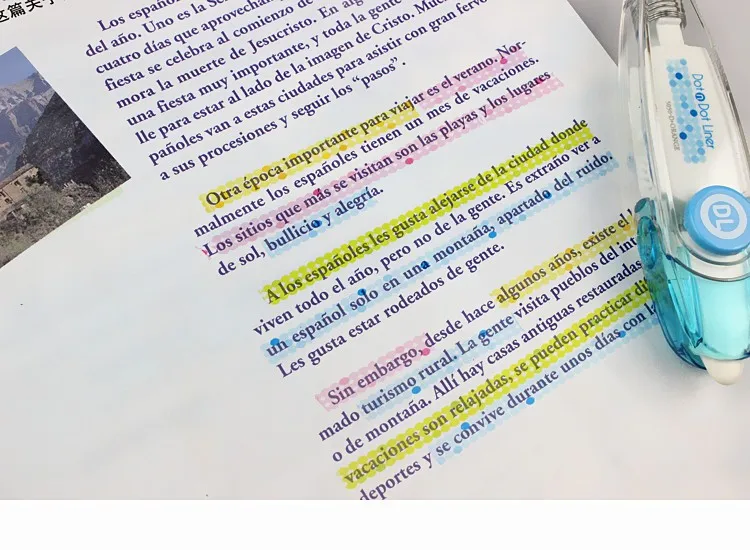 这篇关于
Los españo
del año. Uno es la Se
cuatro días que aprovechan
fiesta se celebra al comienzo de
mora la muerte de Jesucristo. En al
una fiesta muy importante, y toda la gente
lle para estar al lado de la imagen de Cristo. Muc
pañoles van a estas ciudades para asistir con gran fervo
a sus procesiones y seguir los “pasos”.
Otra época importante para viajar es el verano. Nor-
malmente los españoles tienen un mes de vacaciones.
Los sitios que más se visitan son las playas y los lugares
de sol, bullicio y alegría.
A los españoles les gusta alejarse de la ciudad donde
viven todo el año, pero no de la gente. Es extraño ver a
un español solo en una montaña, apartado del ruido.
Les gusta estar rodeados de gente.
Sin embargo, desde hace algunos años, existe el
mado turismo rural. La gente visita pueblos del int
o de montaña. Allí hay casas antiguas restauradas
vacaciones son relajadas, se pueden practicar di
deportes y se convive durante unos días con l
Dot n Dot Liner
DL